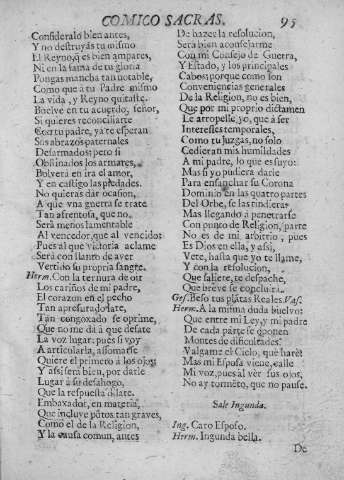 COMICO SACRAS. 95
Consideralo bien antes,
Y no destruyas tu mismo
El Reyno, q̃ es bien ampares,
Ni en la fama de tu gloria
Pongas mancha tan notable,
Como que à tu Padre mismo
La vida, y Reyno quitaste.
Buelve en tu acuerdo, señor,
Si quieres reconciliarte
Cõ tu padre, ya te esperan
Sus abrazos paternales
Desarmados; pero si
Obstinados los armares,
Bolverà en ira el amor,
Y en castigo las piedades.
No quieras dàr ocasion,
A que vna guerra se trate
Tan afrentosa, que no
Serà menos lamentable
Al vencedor, que al vencido:
Pues al que victoria aclame
Serà con llanto de aver
Vertido su propria sangre.
Herm. Con la ternura de oir
Los cariños de mi padre,
El corazon en el pecho
Tan apresurado late,
Tan congoxado se oprime,
Que no me dà à que desate
La voz lugar: pues si voy
A articularla, assomarse
Quiere el primero à los ojos;
Y assi serà bien, por darle
Lugar à su desahogo,
Que la respuesta dilate.
Embaxador, en materia,
Que incluye pũtos tan graves,
Como el de la Religion,
Y la causa comun, antes
De hazer la resolucion,
Serà bien aconsejarme
Con mi Consejo de Guerra,
Y Estado, y los principales
Cabos: porque como son
Conveniencias generales
De la Religion, no es bien,
Que por mi proprio dictamen
Le atropelle yo, que à ser
Interesses temporales,
Como tu juzgas, no solo
Cedieran mis humildades
A mi padre, lo que es suyo:
Mas si yo pudiera darle
Para ensanchar su Corona
Dominio en las quatro partes
Del Orbe, se las rindiera:
Mas llegando à penetrarse
Con punto de Religion, parte
No es de mi arbitrio; pues
Es Dios en ella, y assi,
Vete, hasta que yo te llame,
Y con la resolucion,
Que saliere, te despache,
Que breve se concluirà.
Ges. Beso tus plãtas Reales. Vas.
Herm. A la misma duda buelvo:
Que entre mi Ley, y mi padre
De cada parte se oponen
Montes de dificultades.
Valgame el Cielo, què harè!
Mas mi Esposa viene, calle
Mi voz, pues al vèr sus ojos,
No ay tormẽto, que no pause.
Sale Ingunda.
Ing. Caro Esposo.
Herm. Ingunda bella.
De